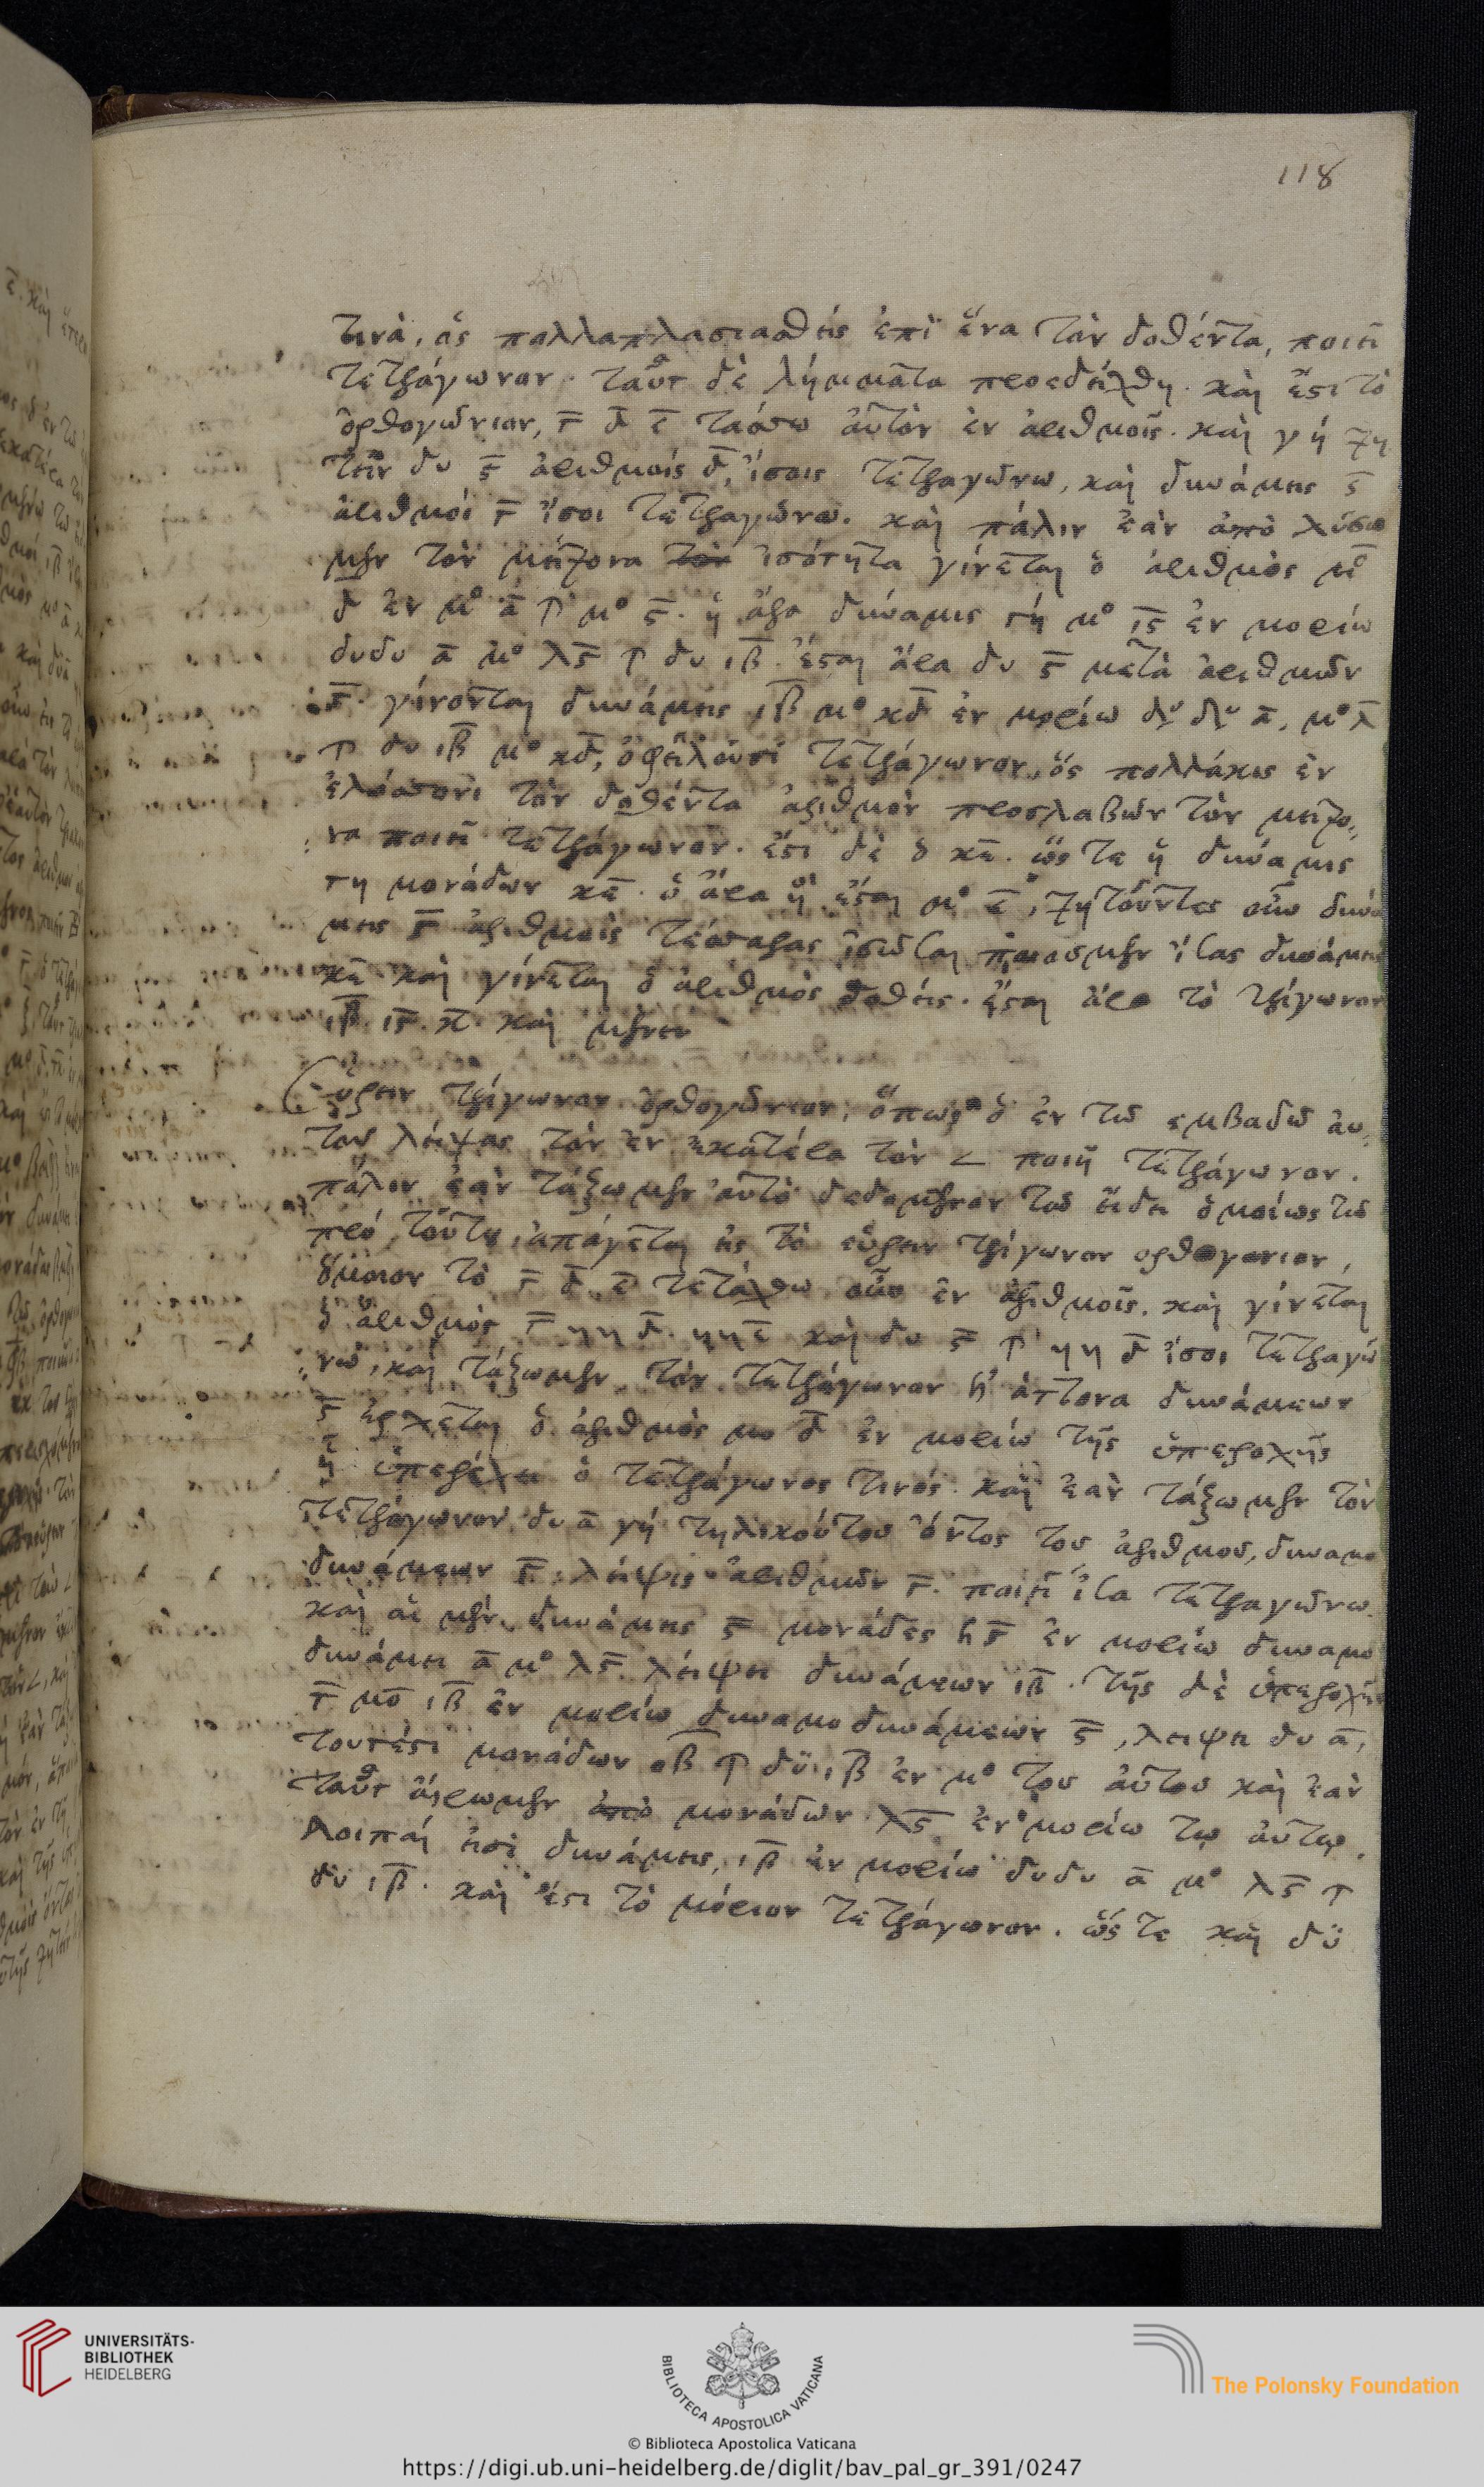 118
τινὰ, ὃς πολλαπλασιασθεὶς ἐπὶ ἕνα τὸν δοθέντα, ποιεῖ
τετράγωνον. ταῦτ δὲ λήμματα προεδείχθη. καὶ ἔστι τὸ
ὀρθογώνιον, γ̅ δ̅ ε̅ τάσσω αὐτὸν ἐν ἀριθμοῖς. καὶ γί ζη
τεῖν δυ ς̅ ἀριθμοῖς δ̅, ἴσοις τετραγώνω, καὶ δυνάμεις ς̅
ἀριθμοί γ̅ ἴσοι τετραγώνω. καὶ πάλιν ἐὰν ἀπὸ λύσω
μεν τὸν μείζονα ἰσότητα γίνεται ὁ ἀριθμὸς μο
δ ἐν μο α̅ ⋔ μο ς̅. ἡ ἄρα δύναμις μο ις̅ ἐν μορίω
δυδυ α̅ μο λς̅ ⋔ δυ ιβ̅. ἔσται ἄρα δυ ς̅ μετὰ ἀριθμῶν
γ̅. γίνονται δυνάμεις ιβ̅ μο κδ̅ ἐν μορίω δυ δυ α̅, μο λ̅
⋔ δυ ιβ̅ μο κδ̅, ὀφείλουσι τετράγωνον, ὃς πολλάκις ἐν
ἐλάσσονι τὸν δοθέντα ἀριθμὸν προσλαβὼν τὸν μείζο,
να ποιεῖ τετράγωνον. ἔστι δὲ ὁ κε̅. ὥστε ἡ δύναμις
μονάδων κε̅. ὁ ἄρα ἔσται μο ε̅, ζητοῦντες οὖν δυνά
μεις ς̅ ἀριθμοῖς τέσσαρας ἰσῶσαι ποιοσμεν ἴσας δυνάμεις
κε̅ καὶ γίνεται ὁ ἀριθμὸς δοθείς. ἔσται ἄρα τὸ τρίγωνον
ιβ̅ ις̅ κ̅. καὶ μένει
εὑρεῖν τρίγωνον ὀρθογώνιον, ὅπως ὁ ἐν τῶ εμβαδῶ αυ,
τοῦ λείψας τὸν ἐν ἑκατέρα τὸν ∠ ποιῇ τετράγωνον.
πάλιν ἐὰν τάξωμεν αὐτὸ δεδομένον τῶ εἴδει ὁμοίως τῶ
πρό τούτυ, ἀπάγεται εἰς τὸ εὑρεῖν τρίγωνον ορθογωνιον,
ὅμοιον τὸ γ̅ δ̅ ε̅ τετάχθω οὖν ἐν ἀριθμοῖς. καὶ γίνεται
ὁ ἀριθμὸς γ̅ ηη δ̅. ηη ε̅ καὶ δυ ς̅ ⋔ ηη δ̅ ἴσοι τετραγώ
νω, καὶ τάξωμεν τὸν τετράγωνον ἥττονα δυνάμεων
ς̅ ἔρχεται ὁ ἀριθμὸς μο δ̅ ἐν μορίω τῆς ὑπεροχῆς
ᾗ ὑπερέχει ὁ τετράγωνος τινός. καὶ ἐὰν τάξωμεν τὸν
τετράγωνον δυ α̅ γί τηλικούτου ὄντος του ἀριθμου, δυναμο
δυνάμεων ς̅ λείψις ἀριθμῶν γ̅. ποιεῖ ἴσα τετραγώνω.
καὶ αἱ μὲν δυνάμεις ς̅ μονάδες ϟς̅ ἐν μορίω δυναμο
δυνάμει α̅ μο λς̅. λείψει δυνάμεων ιβ̅. τῆς δὲ ὑπεροχῆς
γ̅ μο ιβ̅ ἐν μορίω δυναμοδυνάμεων ς̅, λειψει δυ α̅,
τουτέστι μονάδων οβ̅ ⋔ δυ ιβ̅ ἐν μο του αὐτου καὶ ἐὰν
ταῦτ ἄρωμεν ἀπὸ μονάδων λς̅ ἐν μορίω τῳ αὐτῳ.
λοιπαί εἰσι δυνάμεις, ιβ̅ ἐν μορίω δυδυ α̅ μο λς̅ ⋔
δυ ιβ̅. καὶ ἔστι τὸ μόριον τετράγωνον. ὥστε καὶ δυ
UNIVERSITÄTS-
BIBLIOTHEK
HEIDELBERG
BIBLIOTECA APOSTOLICA VATICANA
The Polonsky Foundation
© Biblioteca Apostolica Vaticana
https://digi.ub.uni-heidelberg.de/diglit/bav_pal_gr_391/0247